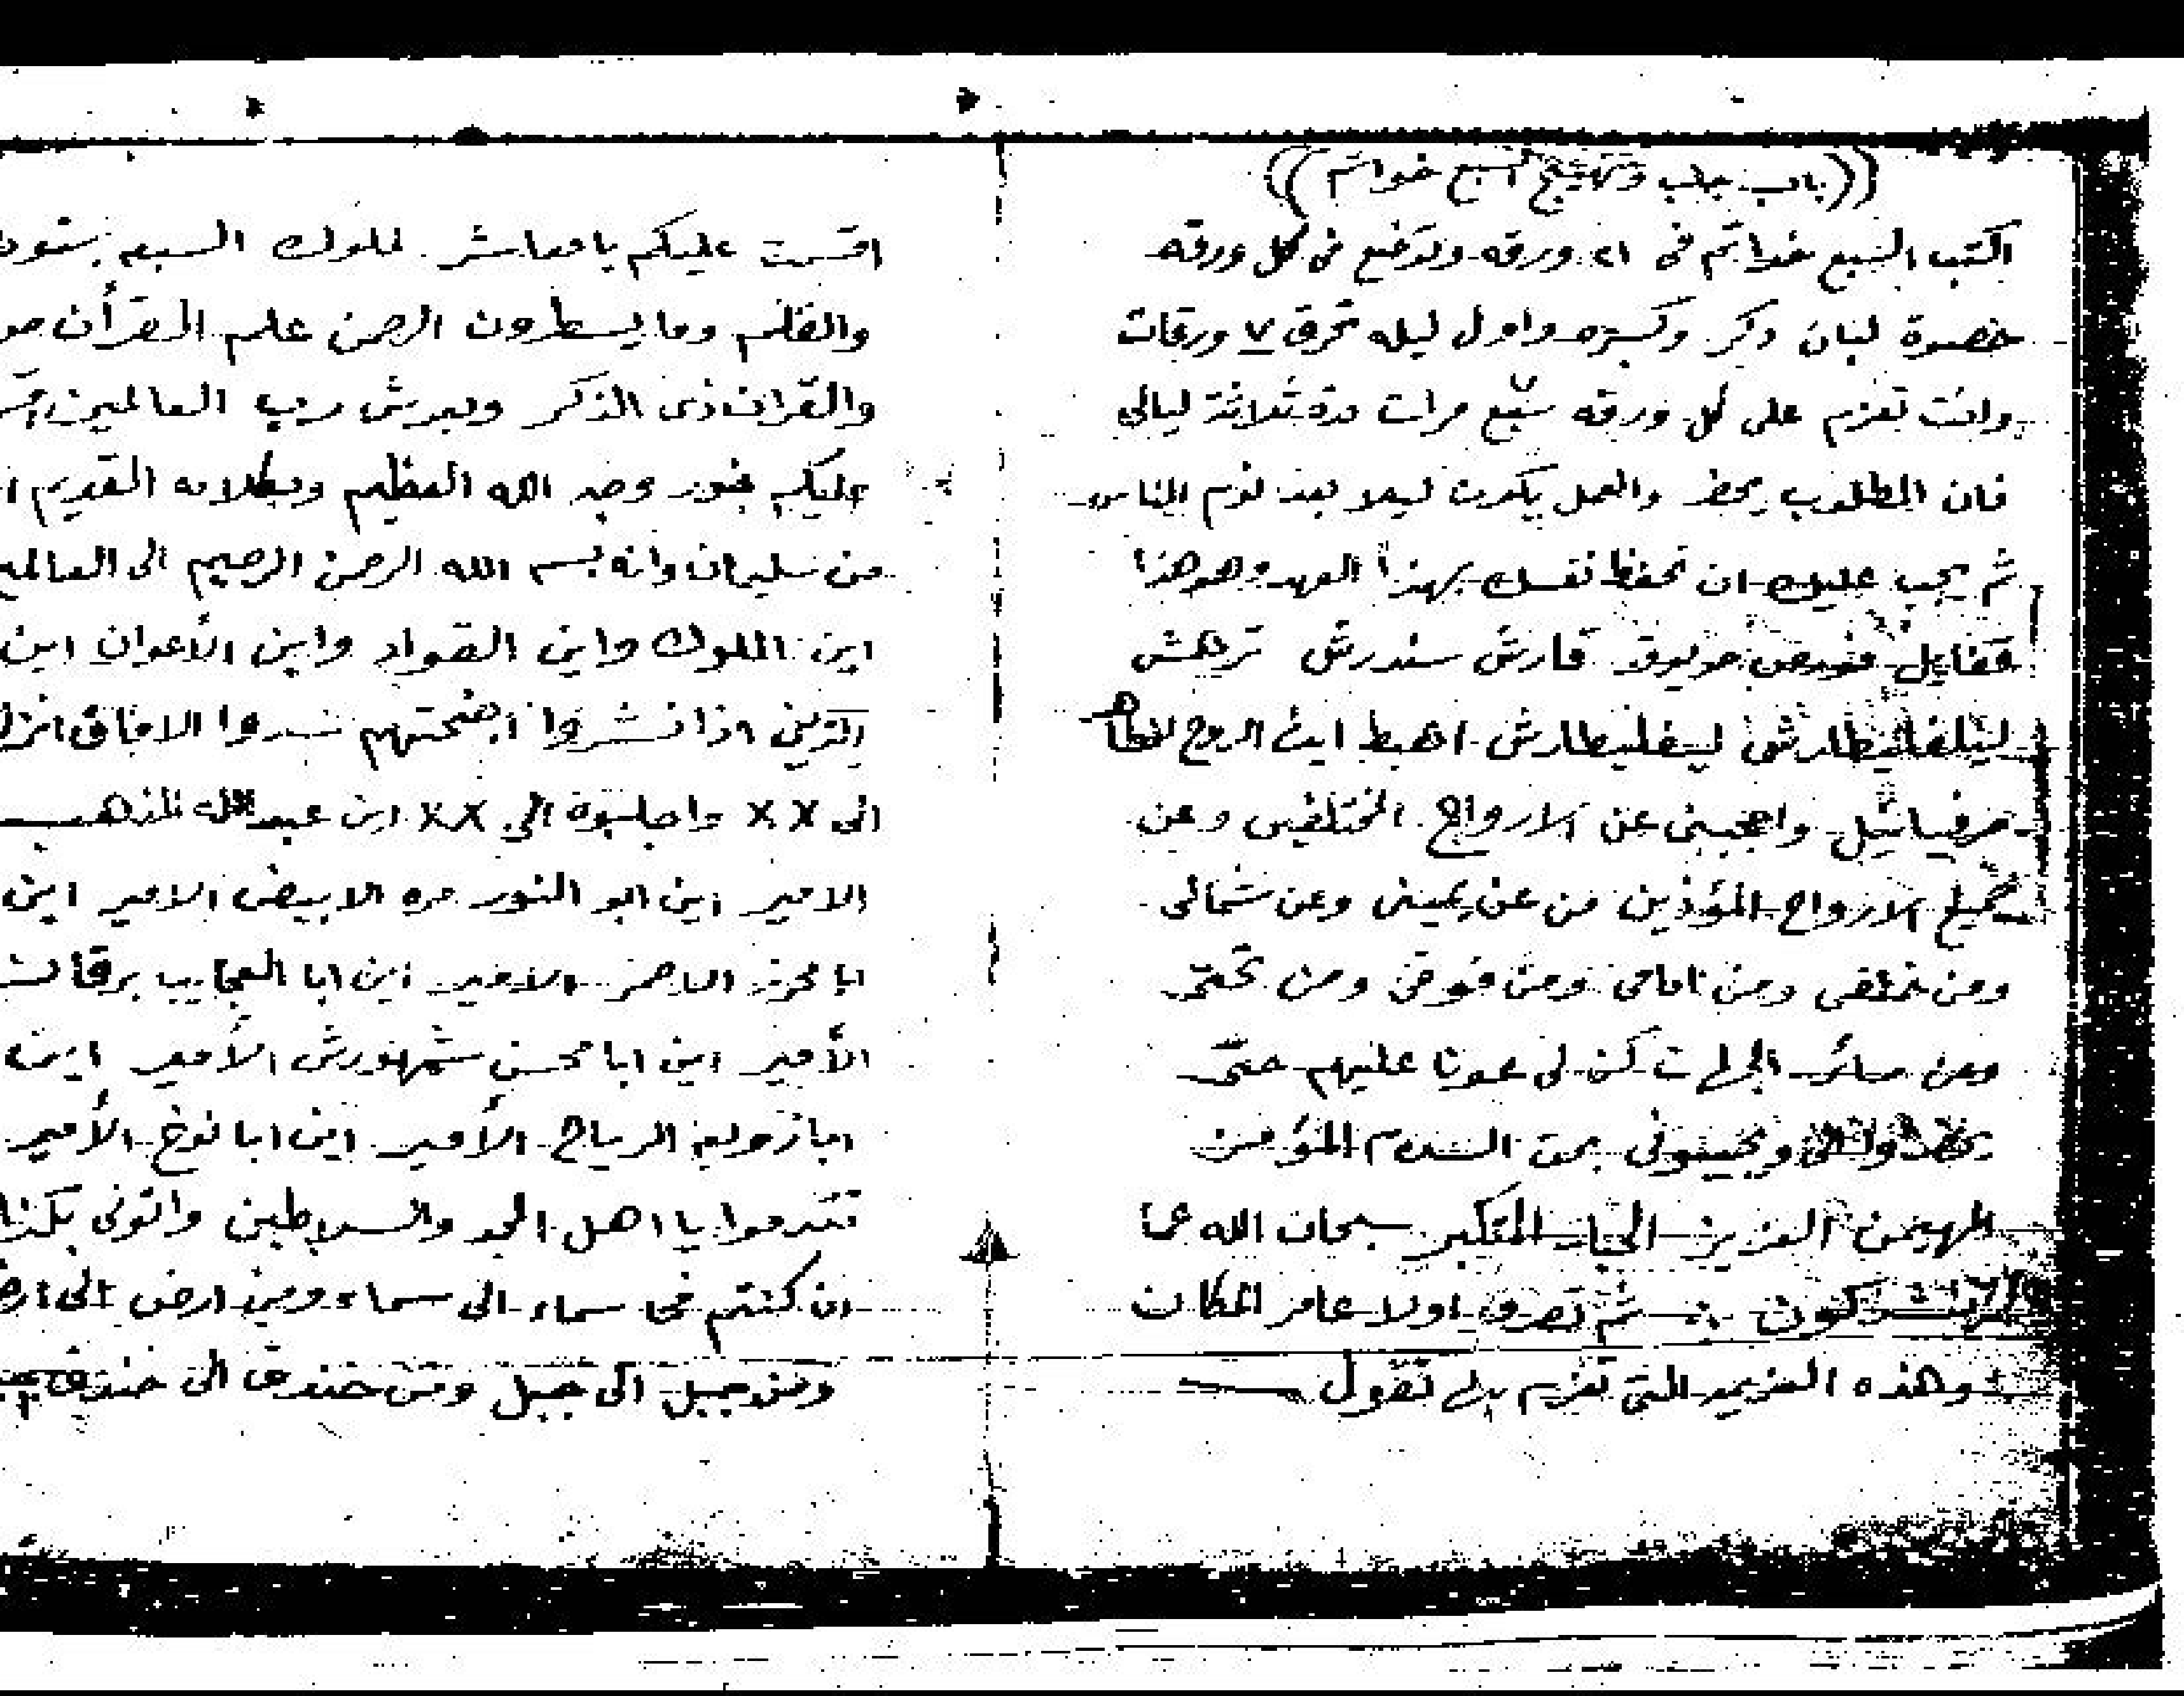 ((باب جلب وتهييج السبع خواتم))
اكتب السبع خواتم فى ٢١ ورقه وتوضع فى كل ورقه
حصوة لبان دكر وكسبره واول ليله تحرق ٧ ورقات
وانت تعزم على كل ورقه سبع مرات مدة ثلاثة ليالى
فان المطلوب يحضر والعمل يكون ليلا بعد نوم الناس
ثم يجب عليك ان تحفظ نفسك بهذا العهد وهو هذا
قارش سندرش ترهش
اهبط ايها الروح
واحجبنى عن الارواح المختلفين وعن
جميع الارواح المؤذين من عن يمينى وعن شمالى
ومن خلفى ومن امامى ومن فوقى ومن تحتى
ومن سائر الجهات كن لى عونا عليهم حتى
ويجيبونى بحق السلام المؤمن
المهيمن العزيز الجبار المتكبر سبحان الله عما
يشركون ثم تصرف اولا عامر المكان
وهذه العزيمه التى تعزم بها تقول
اقسمت عليكم يا معاشر الملوك السبعه بنون
والقلم وما يسطرون الرحمن علم القرآن
والقران ذى الذكر وبعرش رب العالمين
عليكم بنور وجه الله العظيم وبكلامه القديم
من سليمان وانه بسم الله الرحمن الرحيم الى
اين الملوك واين القواد واين الأعوان اين
الذين اذا نشروا اجنحتهم سدوا الافاق
الى XX واجلبوه الي XX اين عبدالله المذهب
الامير اين ابو النور مره الابيض الامير اين
ابا محرز الاحمر الامير اين ابا العجايب برقان
الأمير اين ابا محسن شمهورش الأمير اين
ابا زوبعه الرياح الأمير اين ابا نوخ الأمير
يا اهل الجد والسلاطين واتونى بكذا
ان كنتم فى سماء الى سماء ومن ارض الى
ومن جبل الى جبل ومن خندق الى خندق